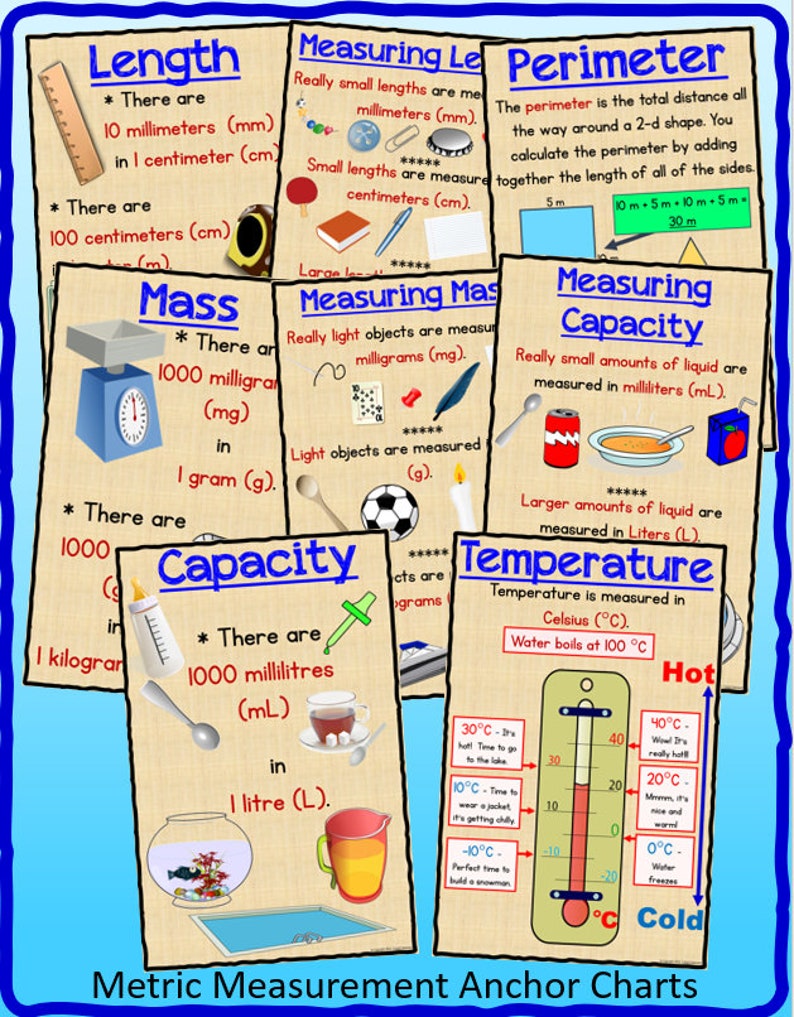 Length
* There are
10 millimeters (mm)
in 1 centimeter (cm)
* There are
100 centimeters (cm)
Measuring Le
Really small lengths are mea
millimeters (mm).
*****
Small lengths are measure
centimeters (cm).
*****
Large
Perimeter
The perimeter is the total distance all
the way around a 2-d shape. You
calculate the perimeter by adding
together the length of all of the sides.
5 m
10 m + 5 m + 10 m + 5 m =
30 m
Mass
* There ar
1000 milligra
(mg)
in
1 gram (g).
* There are
1000
in
1 kilogra
Measuring Mas
Really light objects are measur
milligrams (mg).
10
*****
Light objects are measured
(g).
*****
Measuring
Capacity
Really small amounts of liquid are
measured in milliliters (mL).
*****
Larger amounts of liquid are
measured in Liters (L).
Capacity
* There are
1000 millilitres
(mL)
in
1 litre (L).
Temperature
Temperature is measured in
Celsius (°C).
Water boils at 100 °C
Hot
30°C - It's
hot! Time to go
to the lake.
10°C - Time to
wear a jacket,
it's getting chilly.
-10°C -
Perfect time to
build a snowman.
40
30
20
10
0
-10
-20
°C
40°C -
Wow! It's
really hot!!!
20°C -
Mmmm, it's
nice and
warm!
0°C -
Water
freezes
Cold
Metric Measurement Anchor Charts